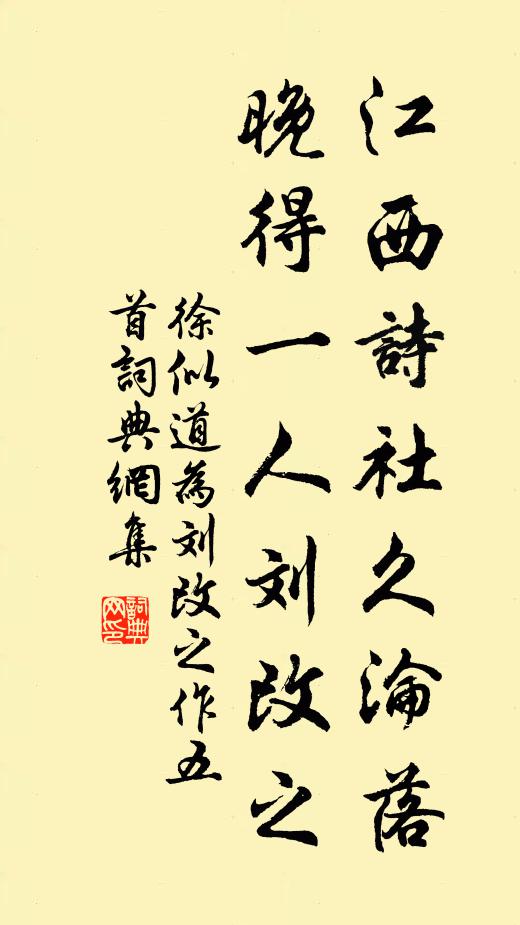 江西詩社久淪落
晚得一人刘改之
徐似道為刘改之作五
首詞典網集
詞典
网印